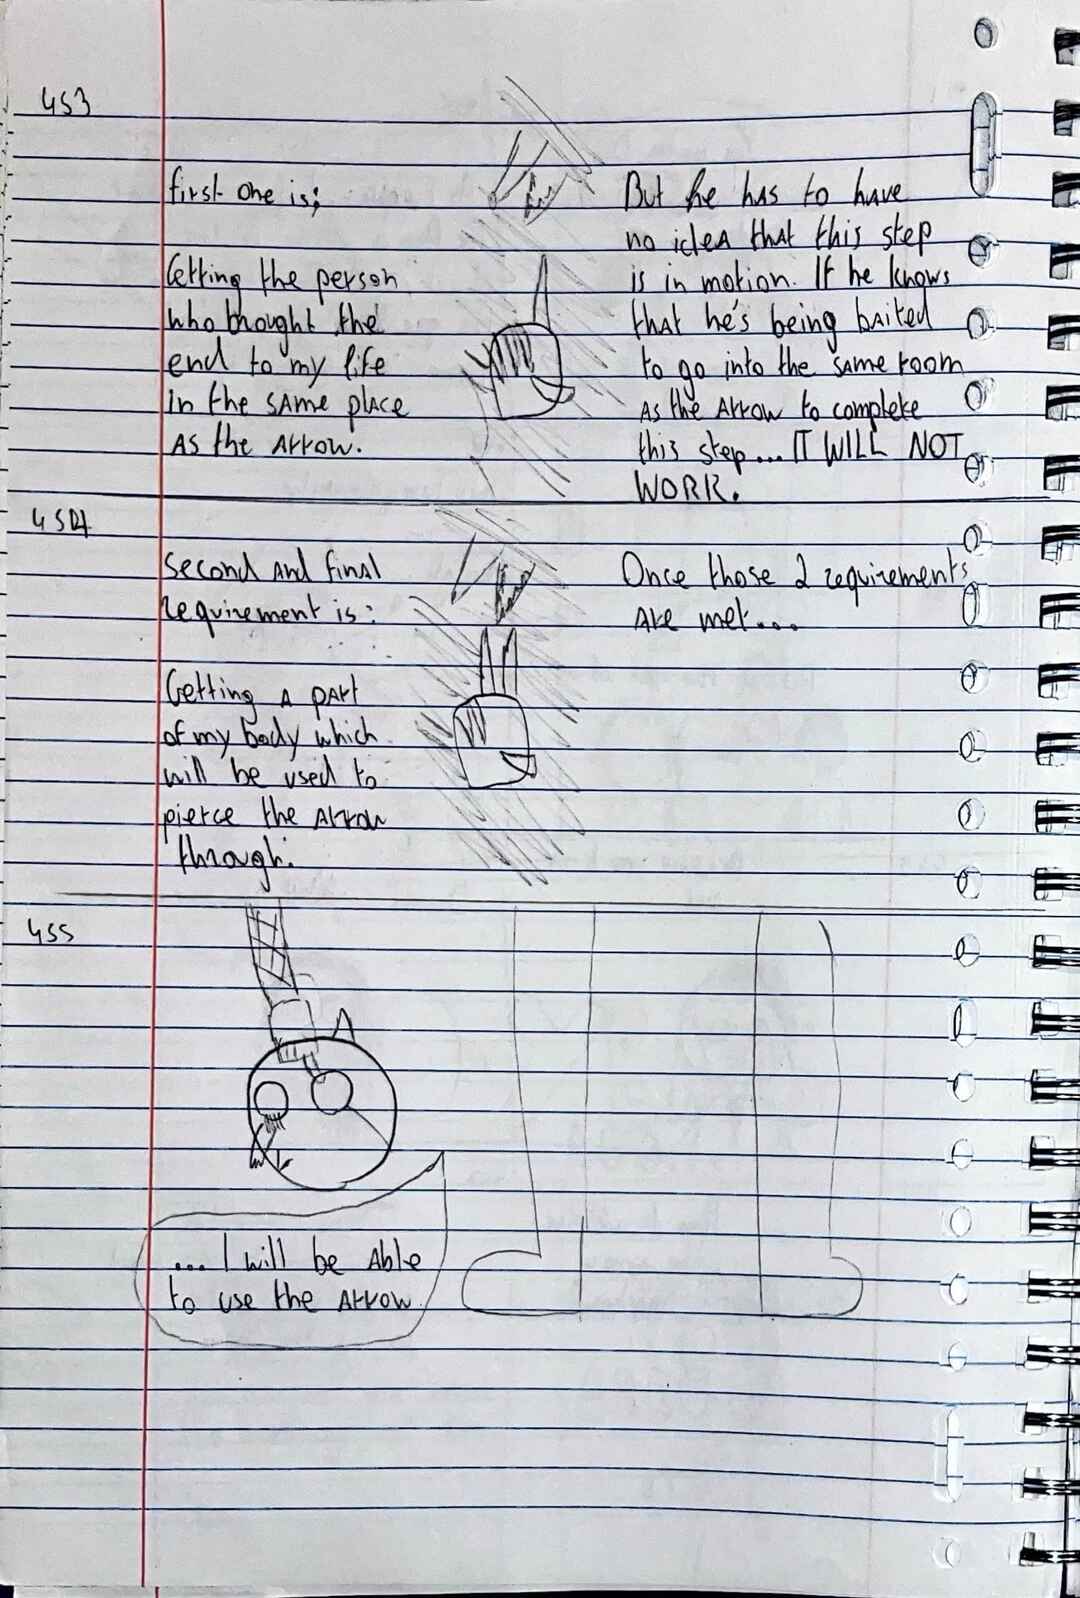 453
first one is;
Getting the person
who brought the
end to my life
in the same place
As the Arrow.
But he has to have
no idea that this step
is in motion. If he knows
that he's being baited
to go into the same room
As the Arrow to complete
this step... IT WILL NOT
WORK.
454
Second and final
requirement is:
Getting a part
of my body which
will be used to
pierce the Arrow
through.
Once those 2 requirements
Are met...
455
... I will be Able
to use the Arrow.